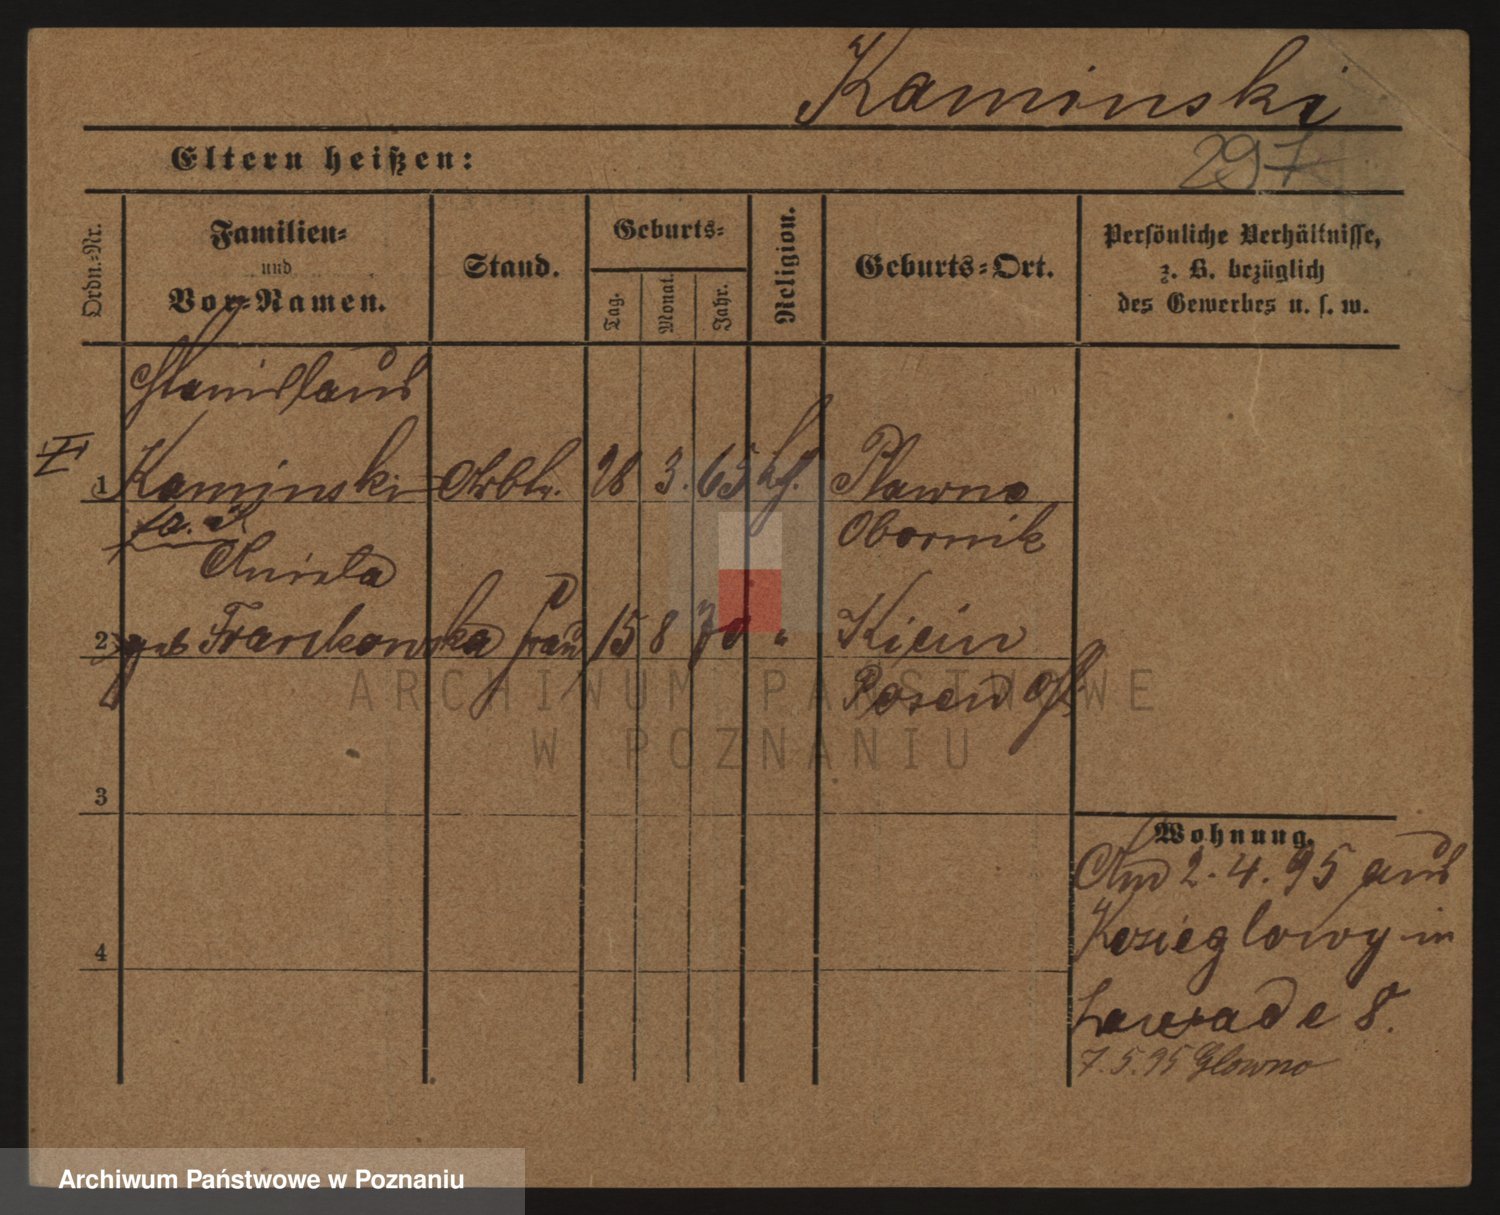 Kaminski
Eltern heißen:
297
Ordn.-Nr.
Familien-
und
Vor-Namen.
Stand.
Geburts-
Tag.
Monat.
Jahr.
Religion.
Geburts-Ort.
Persönliche Verhältnisse,
z. B. bezüglich
des Gewerbes u. s. w.
Stanislaus
1 Kaminski Arbtr. 28 3. 65 Plawno
Obornik
Aniela
2 geb Frankowska Frau 15 8 70 " Kicin
Posen Ost
ARCHIWUM PAŃSTWOWE
W POZNANIU
3
4
Wohnung.
Am 2.4.95 aus
Kozieglowy in
Zawade 8.
7.5.95 Glowno
Archiwum Państwowe w Poznaniu